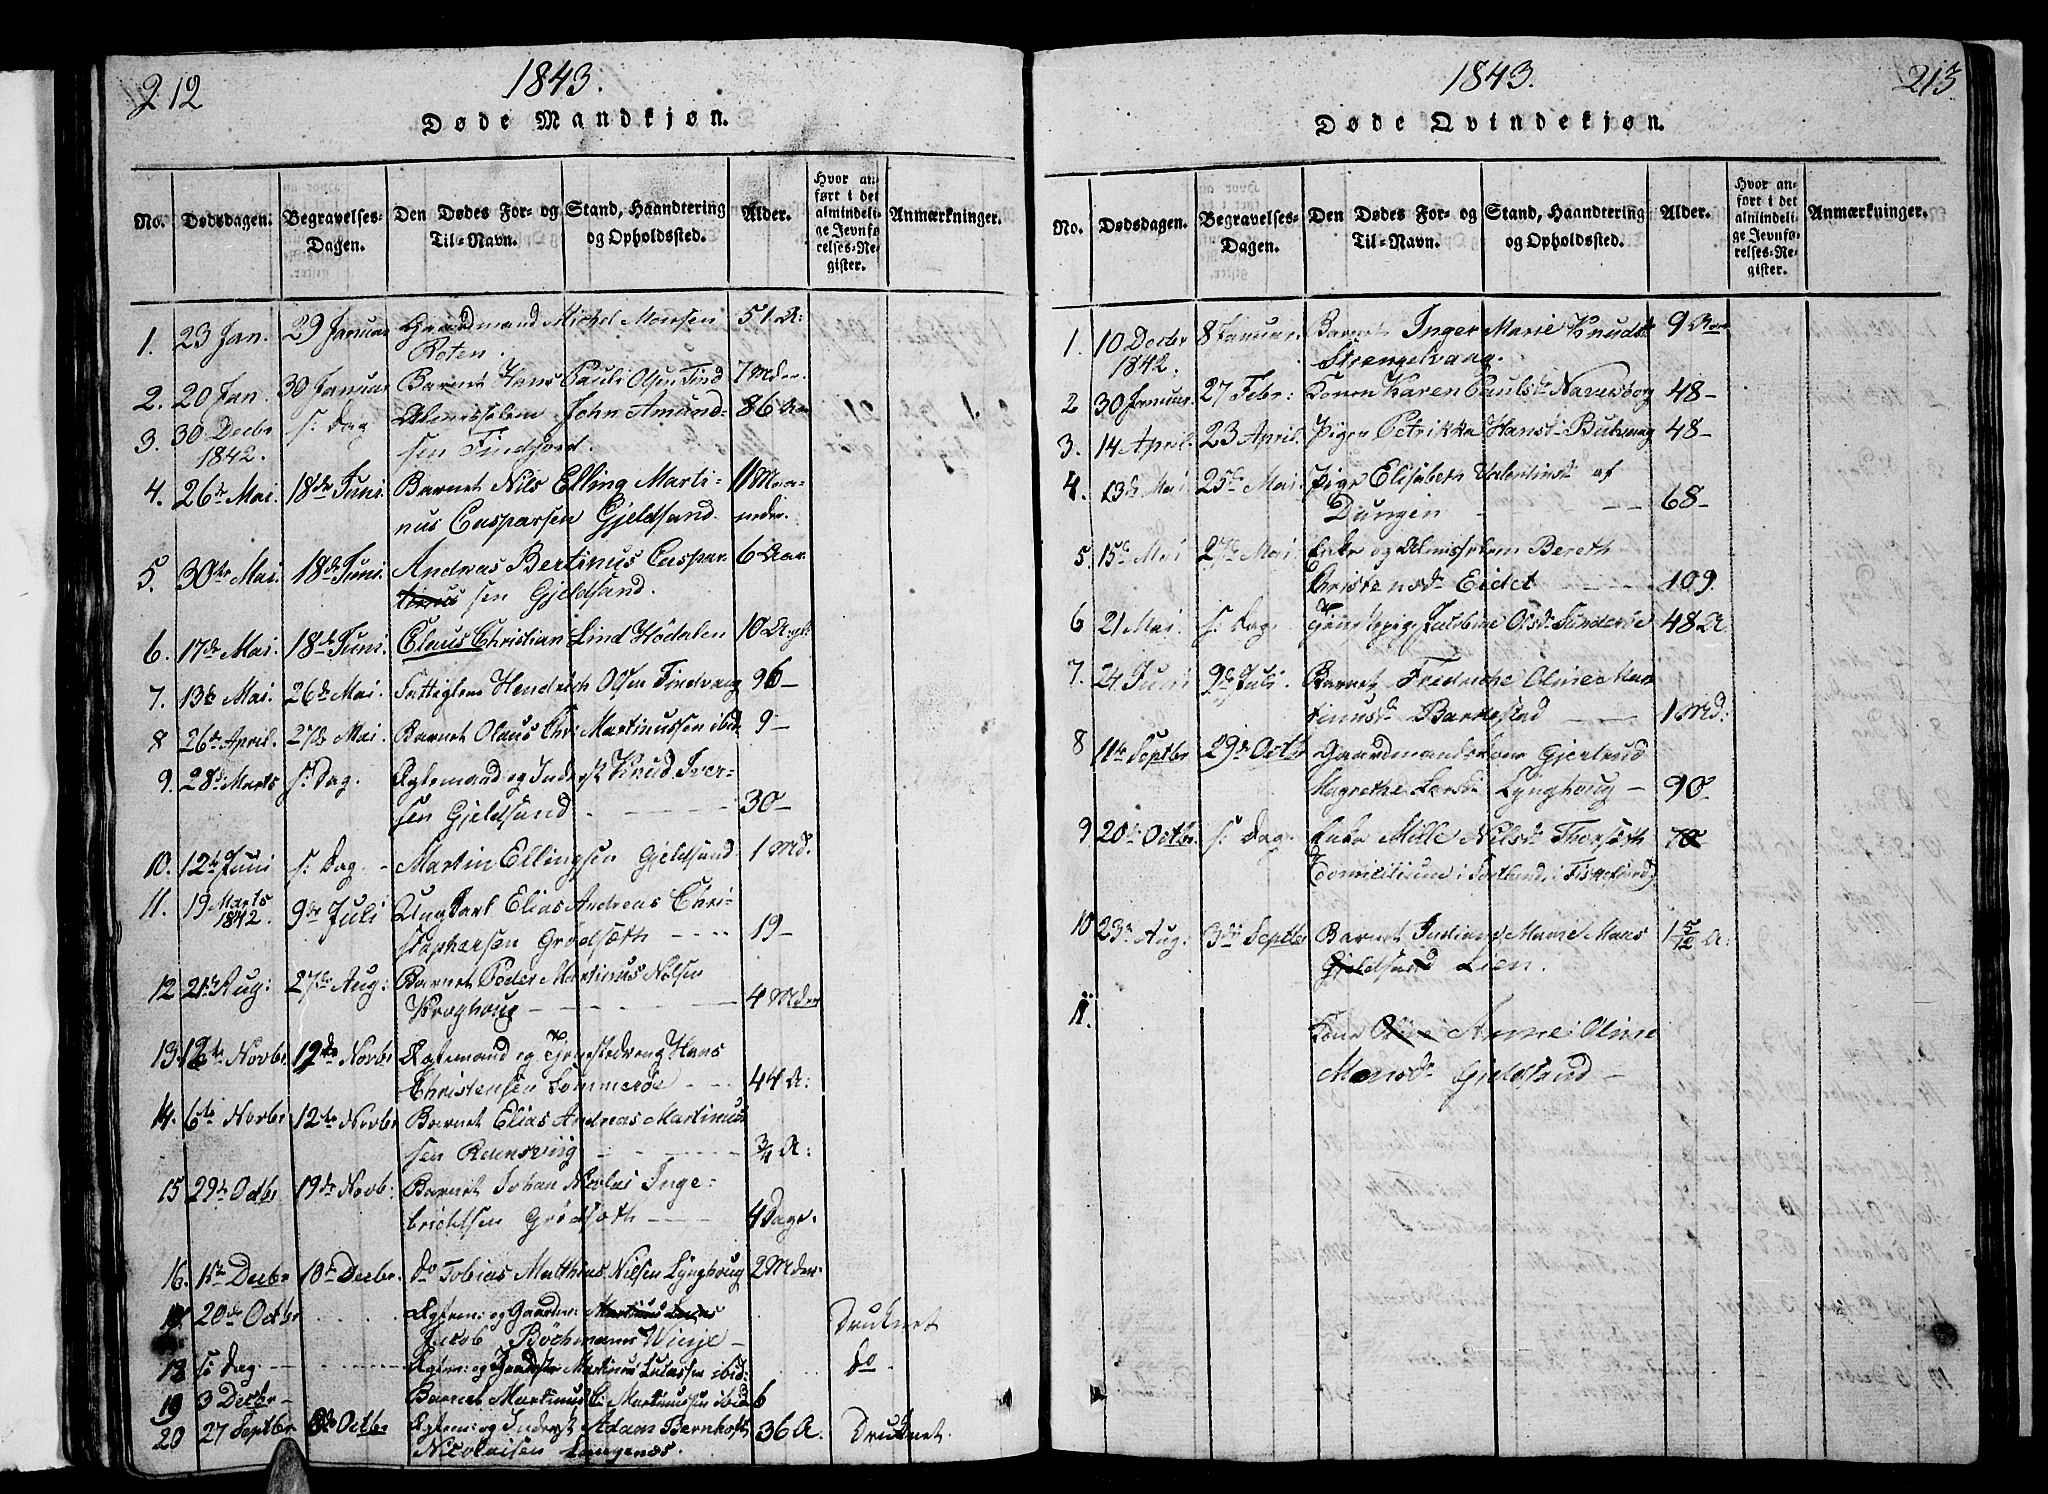 212
1843.
Døde Mandkjøn.
No. Dødsdagen. Begravelses-Dagen. Den Dødes For- og Til-Navn. Stand, Haandtering og Opholdssted. Alder. Hvor anført i det almindelige Jevnførelses-Register. Anmærkninger.
1. 23 Jan. 29 Januar Gaardmand Michel Monsen 51 A:
Roten.
2. 20 Jan. 30 Januar Barnet Hans Pauli Olsen Tind 7 Mdr.
3. 30 Decbr s: Dag Almisselem John Amund- 86 Aar
1842. sen Tindsford
4. 26de Mai. 18de Juni Barnet Nils Elling Marti- 11 Maa-
nus Casparsen Gjeldsand. neder.
5. 30te Mai. 18de Juni. Andreas Bertinus Caspar 6 Aar
sen Gjeldsand.
6. 17de Mai. 18de Juni. Claus Christian Lind Hödalen 10 A: gl.
7. 13de Mai. 26de Mai. Fattiglem Hendrich Olsen Tindvaag 96 –
8 26de April. 27de Mai. Barnet Olaus Chr: Martinussen ibid 9 –
9. 28de Marts s: Dag. Ægtemand og Inderst Knud Iver-
sen Gjeldsand – 30 –
10. 12te Juni s: Dag – Martin Ellingsen Gjeldsand 1 Md.
11. 19 Marts 9de Juli Ungkarl Elias Andreas Chri-
1842. stophersen Grødsøth – 19 –
12 21de Aug: 27de Aug: Barnet Peder Martinus Nilsen
Kroghoug – 4 Mdr
13. 12te Novbr 12de Novbr Ægtemand og Hans
Christensen Sommerøe – 44 A:
14. 6te Novbr 12te Novbr Barnet Elias Andreas Martinus
sen – 3/4 A:
15 29de Octbr 19de Novb: Barnet Johan Nicolai Inge-
brichtsen Grødsøth – 4 Dage.
16. Decbr 10de Decbr. do Tobias Matthias Nilsen Lynghoug 2 Mdr.
20de Octbr Ægtem: og Gaardm: Druknet
Jacob Böchmann Winje –
18 s: Dag – Ægtem: og Martinus Lucassen ibid: do –
19 3 Decbr – Barnet Martinus C: Martinussen ibid 6
20 27 Septbr Octbr Ægtem: og Inderst Adam Bernhoft 36 A. Druknet.
Nicolaisen Langenæs.
1843.
213
Døde Qvindekjøn.
No. Dødsdagen. Begravelses-Dagen. Den Dødes For- og Til-Navn. Stand, Haandtering og Opholdssted. Alder. Hvor anført i det almindelige Jevnførelses-Register. Anmærkninger.
1. 10 Decbr 8 Januar. Barnet Inger Marie Knudsd 9 Aar
1842. Strengelvaag.
2 30 Januar. 27 Febr: Konen Karen Paulsd: 48 –
3. 14 April. 23 April. Pigen Petrikke Hansd: 48 –
4. 13de Mai 25de Mai. Pige Elisabeth Valentinsd: af
Dungen – 68 –
5. 15de Mai 27de Mai. Enke og Almisselem Bereth
Christensd: Eidet – 109.
6 21 Mai. s: Dag – Jakobine Olsd: 48 A.
7. 24 Juni 9de Juli. Barnet Fredriche Oline Mar
tinusd: Barkestad – 1 Md:
8 11te Septbr 29de Octbr Gaardmandskone Gjertrud
Magrethe Larsd: Lynghoug – 90 –
9 20de Octbr. s: Dag. Enke Mille Nilsd: Thorsøth
(Domicilium i Sortland, i Fiskefjord)
10 23de Aug: 3die Septbr Barnet Marie Maas 1 5/12 A:
Gjeldsand Lien.
11. Kone Anne Oline
Monsd: Gjeldsand –